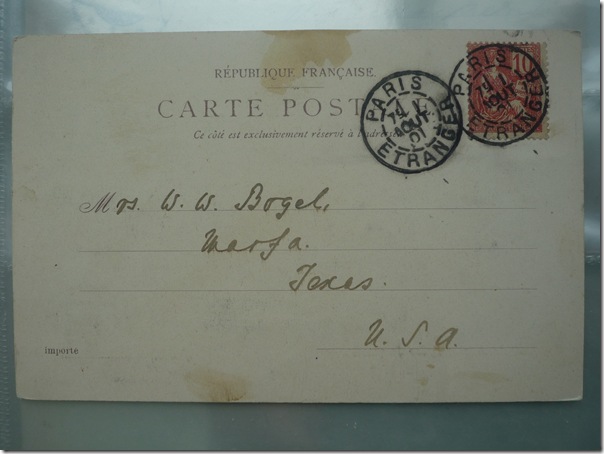 RÉPUBLIQUE FRANÇAISE.
CARTE POSTALE
Ce côté est exclusivement réservé à l'adresse
PARIS
AOUT
01
ETRANGER
10
PARIS
AOUT
ETRANGER
Mrs. W. W. Bogel,
Marfa.
Texas.
U. S. A.
importe